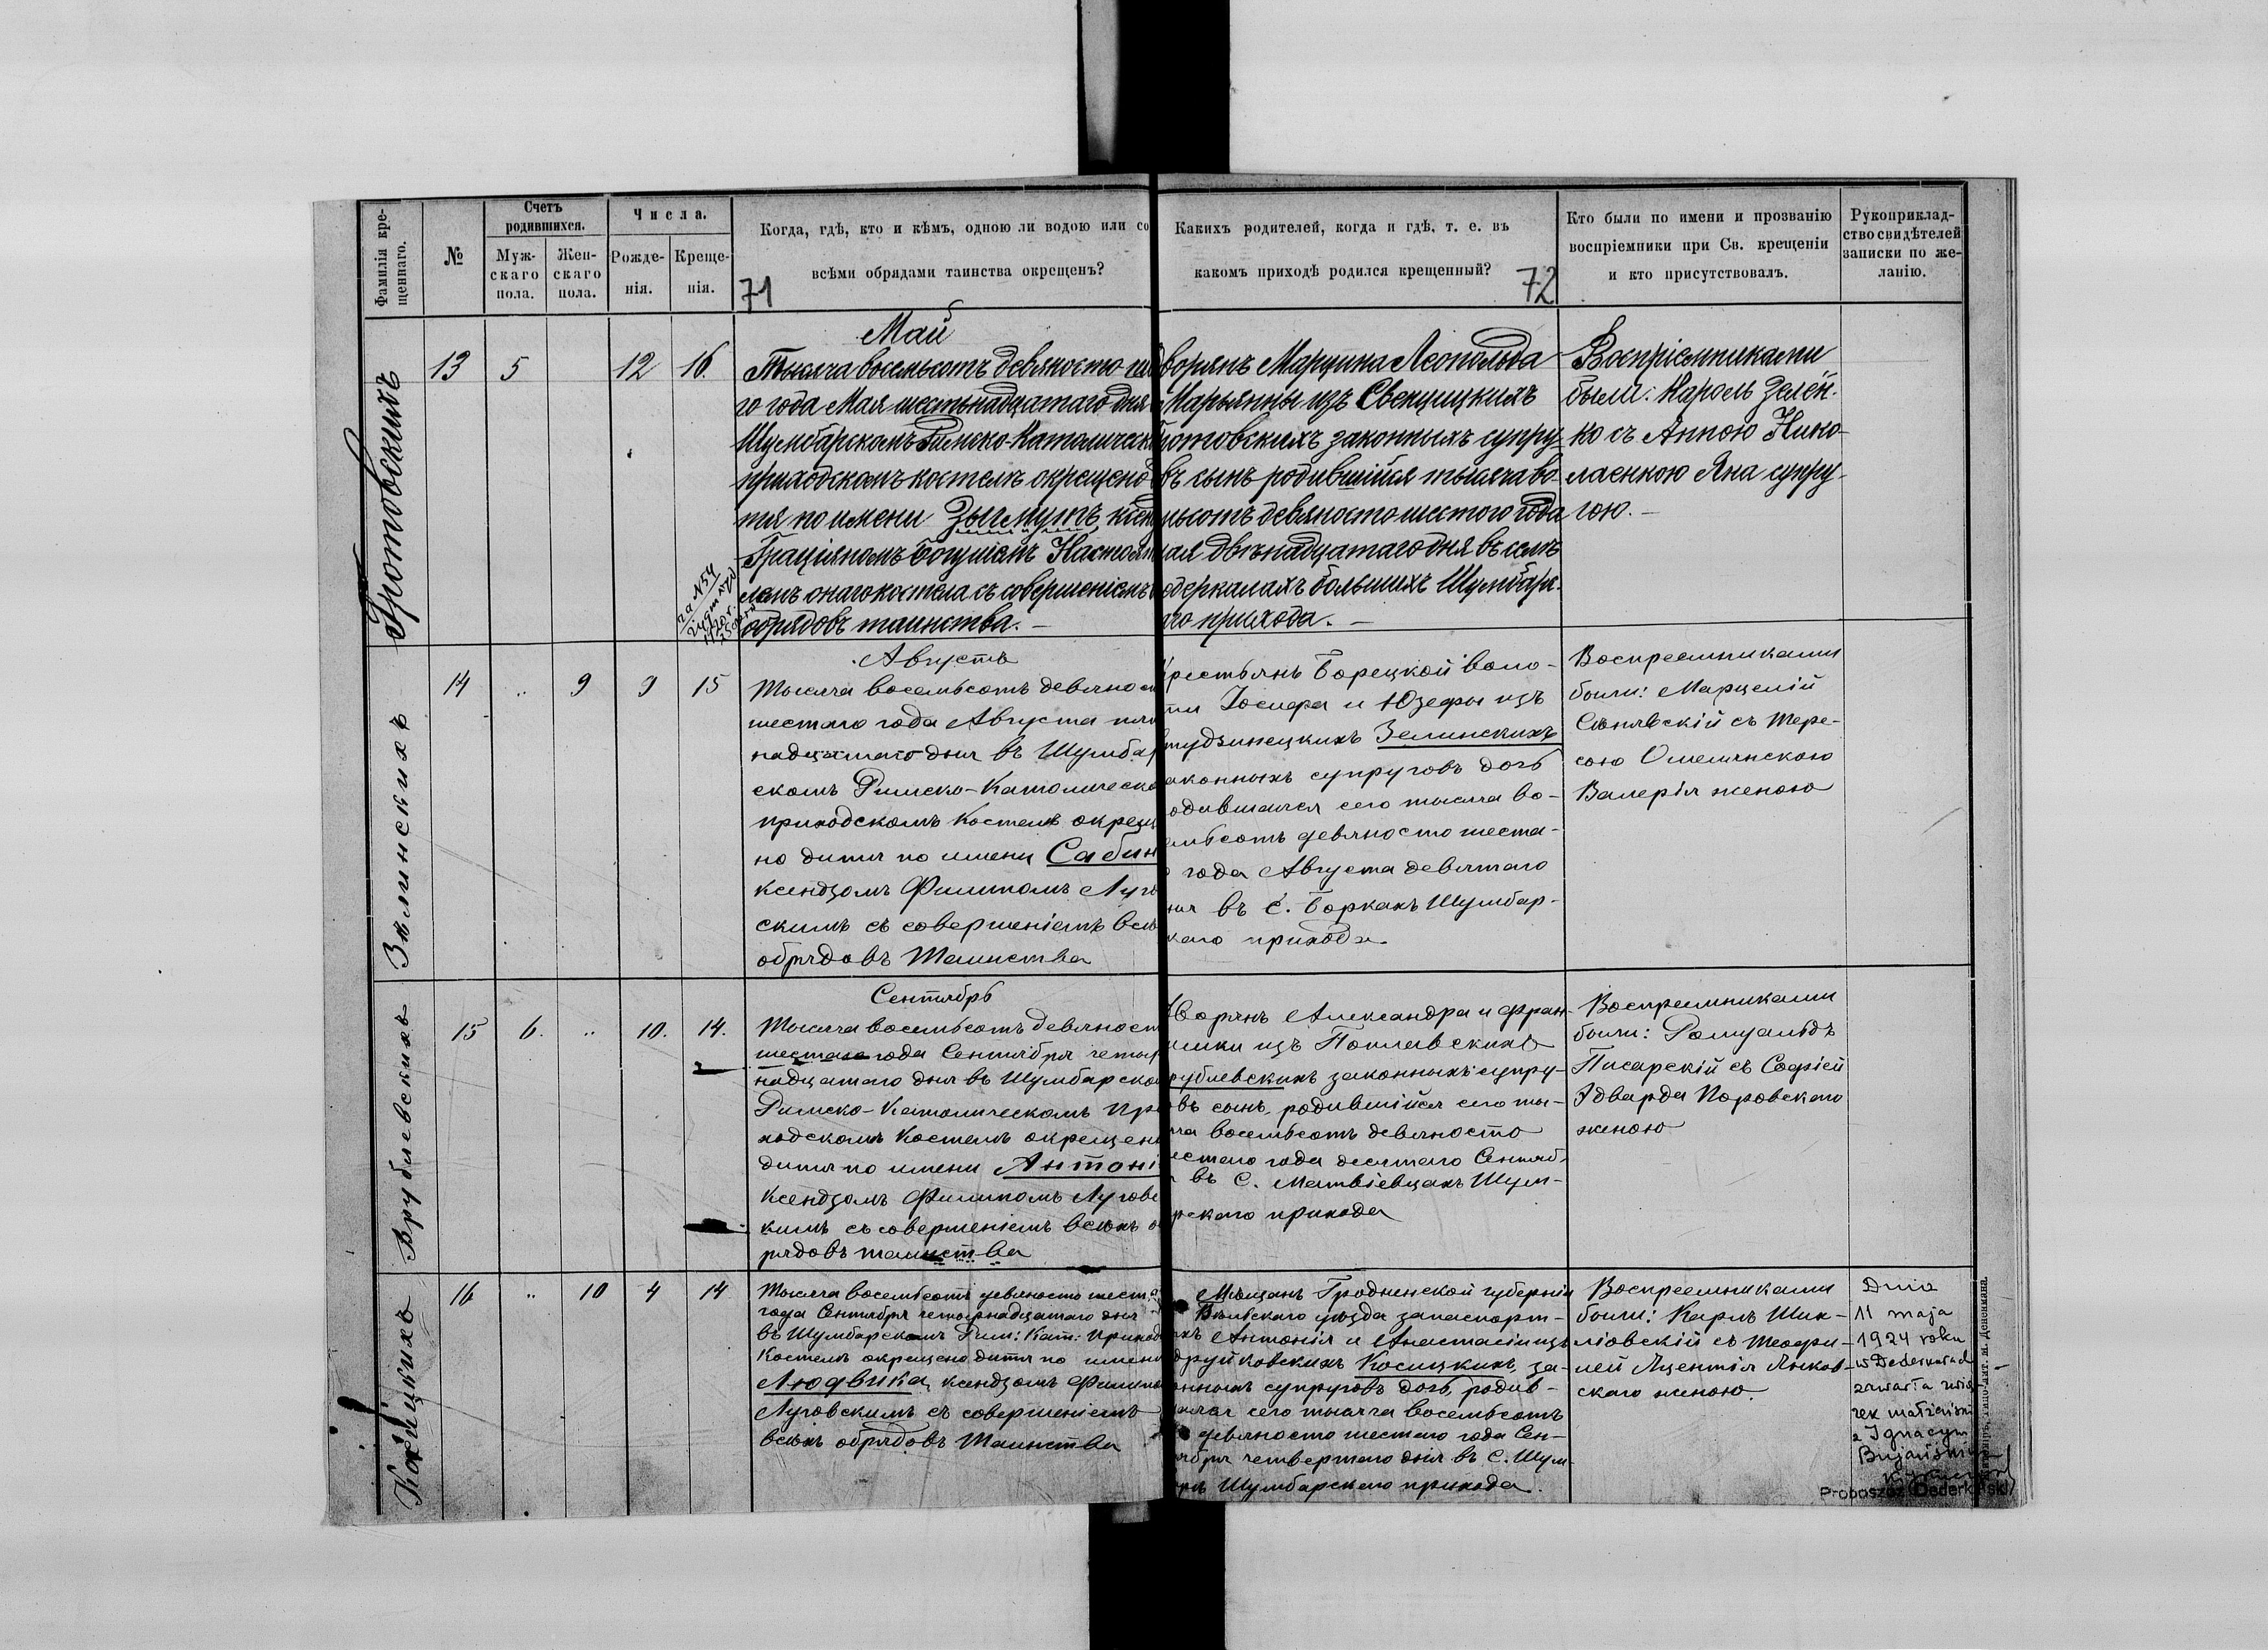 Фамилія кре-
щеннаго.
№
Счетъ
родившихся.
Муж-
скаго
пола.
Жен-
скаго
пола.
Числа.
Рожде-
нія.
Креще-
нія.
Когда, гдѣ, кто и кѣмъ, одною ли водою или со
всѣми обрядами таинства окрещенъ?
71
Какихъ родителей, когда и гдѣ, т. е. въ
какомъ приходѣ родился крещенный?
72
Кто были по имени и прозванію
воспріемники при Св. крещеніи
и кто присутствовалъ.
Рукоприклад-
ство свидѣтелей
записки по же-
ланію.
13
5
12
16.
Май
Тысяча восемьсотъ девяносто
го года Мая шестьнадцатаго дня
Шумбарскомъ Римско-Католическ
приходскомъ костелѣ окрещено д
тя по имени Зыгмунтъ
Граціяномъ Настоят
лемъ онаго костела съ совершеніемъ
обрядовъ таинства. —
ворянъ Марцина Леопольда
Марьянны изъ Свенцицкихъ
ротовскихъ законныхъ супру-
въ сынъ родившійся тысяча во-
мьсотъ девяносто шестого года
ая двѣнадцатаго дня въ селѣ
одеркалахъ большихъ Шумбар.
го прихода. —
Воспріемниками
были: Кароль Зелён-
ко съ Анною Нико-
лаенкою Яна супру-
гою. —
Зелинскихъ
14
"
9
9
15
Августъ
Тысяча восемьсотъ девяност
шестаго года Августа пят
надцатаго дня въ Шумбар
скомъ Римско-Католическо
приходскомъ Костелѣ окреще
но дитя по имени Сабин
ксендзомъ Филипомъ Луго
скимъ съ совершеніемъ всѣ
обрядовъ Таинства
рестьянъ Борецкой воло-
ти Іосифа и Юзефы изъ
тудзинецкихъ Зелинскихъ
аконныхъ супруговъ дочь
одившаяся сего тысяча во-
емьсотъ девяносто шеста-
года Августа девятаго
ня въ с. Боркахъ Шумбар-
каго прихода.
Воспреемниками
были: Марцелій
Сѣнявскій съ Тере-
сою Омелянскою
Валерія женою
Врублевскихъ
15
6.
"
10.
14.
Сентябрь
Тысяча восемьсотъ девяност
шестаго года Сентября четыр
надцатаго дня въ Шумбарско
Римско-Католическомъ При
ходскомъ Костелѣ окрещен
дитя по имени Антоні
Ксендзомъ Филипомъ Лугов
кимъ съ совершеніемъ всѣхъ о
рядовъ таинства
Дворянъ Александра и Фран-
ишки изъ Поплавскихъ
рублевскихъ законныхъ супру-
овъ сынъ, родившійся сего ты-
ча восемьсотъ девяносто
естаго года десятаго Сентяб-
въ С. Матвіевцахъ Шум-
рскаго прихода
Воспреемниками
были: Ромуальдъ
Писарскій съ Софіей
Эдварда Поровскаго
женою
Косицкихъ
16
"
10
4
14
Тысяча восемьсотъ девяносто шест
года Сентября четырнадцатаго дня
въ Шумбарскомъ Рим: Кат: приход
Костелѣ окрещено дитя по имени
Людвика, ксендзомъ Филипо
Луговскимъ съ совершеніемъ
всѣхъ обрядовъ Таинства
Мѣщанъ Гродненской губерніи
уѣзда запаспорт-
хъ Антонія и Анастасіи изъ
Косицкихъ за-
онныхъ супруговъ дочь, родив-
аяся сего тысяча восемьсотъ
девяносто шестаго года Сен-
ября четвертаго дня въ С. Шум-
Шумбарскаго прихода.
Воспреемниками
были: Карлъ Шик-
ліовскій съ Теофи-
лей Яцентія Янков-
скаго женою.
Dnia
11 maja
1924 roku
w Dederkałach
zawarła zwią
zek małżeński
z Ignacym
Proboszcz Dederkalski